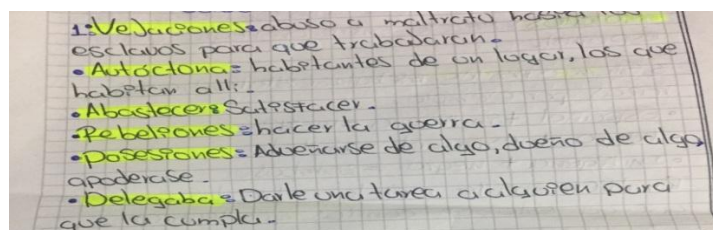 1: Vejaciones: abuso a maltrato hasta los
esclavos para que trabajaran.
• Autóctona: habitantes de un lugar, los que
habitan allí.
• Abastecer: Satisfacer.
• Rebeliones: hacer la guerra.
• Posesiones: Adueñarse de algo, dueño de algo,
apoderase.
• Delegaba: Darle una tarea a alguien para
que la cumpla.